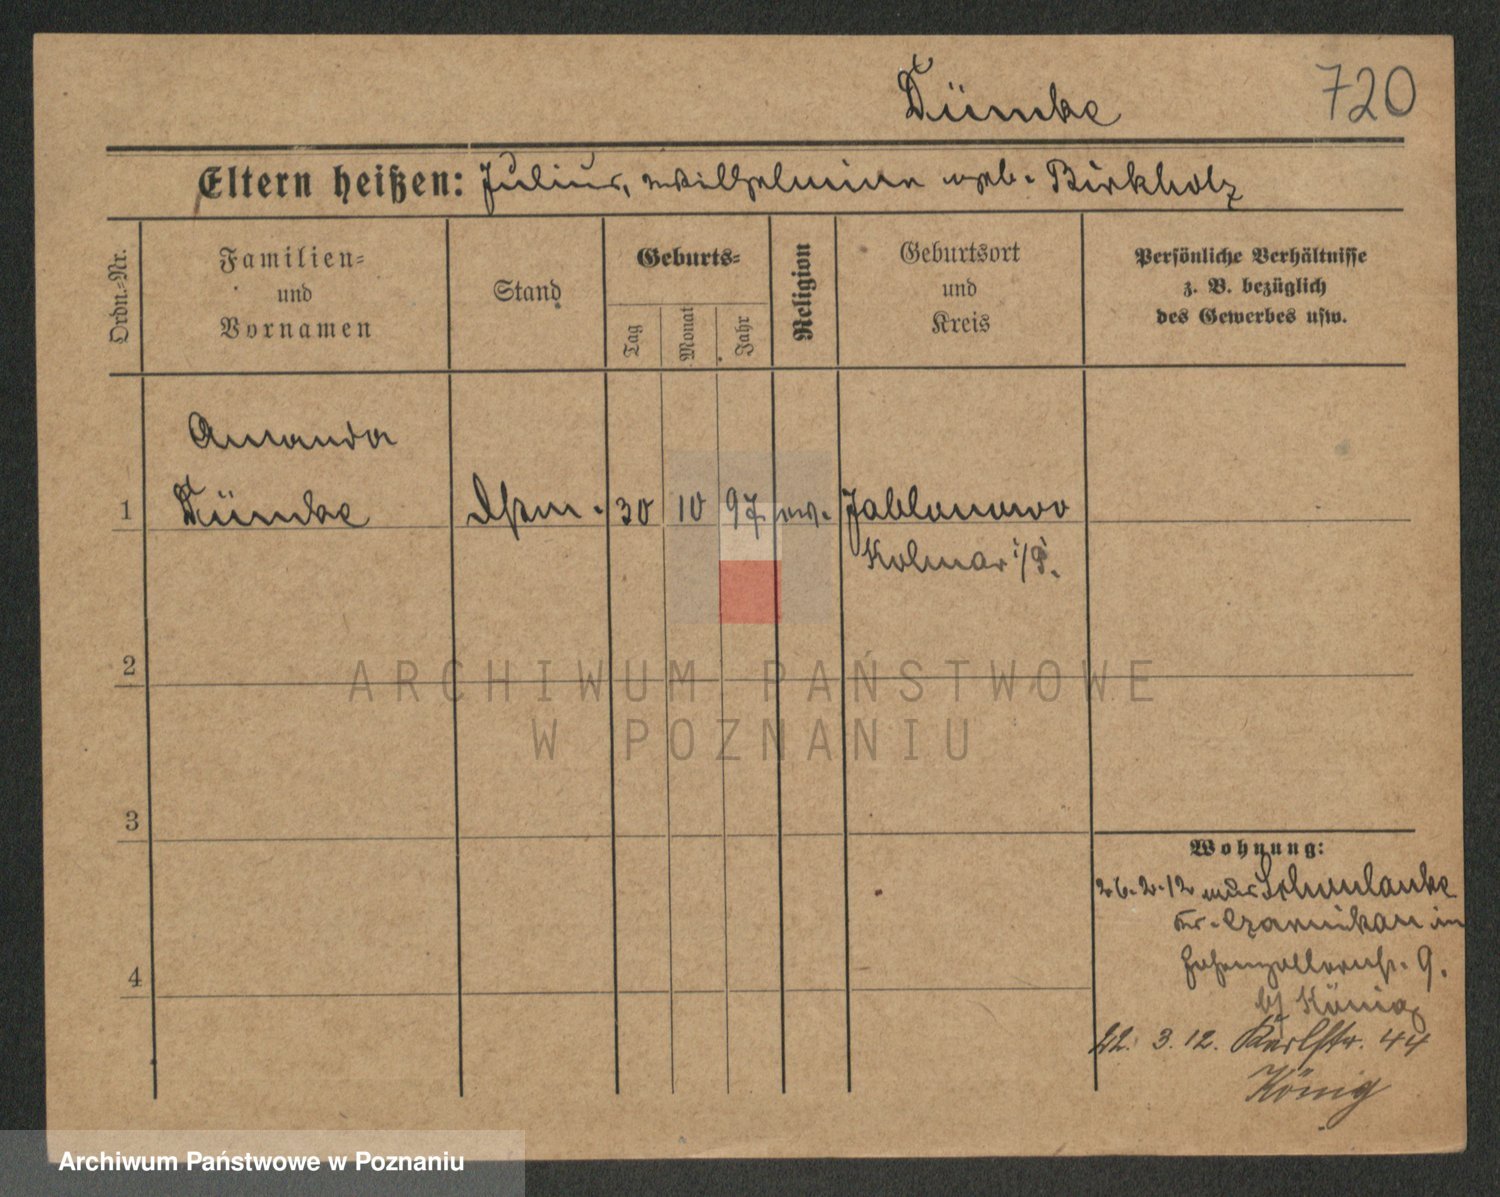 Dümke
720
Eltern heißen: Julius, Wilhelmine geb. Birkholz
Ordn.-Nr.
Familien-
und
Vornamen
Stand
Geburts-
Tag
Monat
Jahr
Religion
Geburtsort
und
Kreis
Persönliche Verhältnisse
z. B. bezüglich
des Gewerbes usw.
Amanda
1 Dümke 30 10 97 ev. Jablonowo
Kolmar i/P.
2
ARCHIWUM PAŃSTWOWE
W POZNANIU
3
4
Wohnung:
26.2.12 aus Schönlanke
Kr. Czarnikau in
Hohenzollernstr. 9.
bei König
22. 3. 12. Karlstr. 44
König
Archiwum Państwowe w Poznaniu